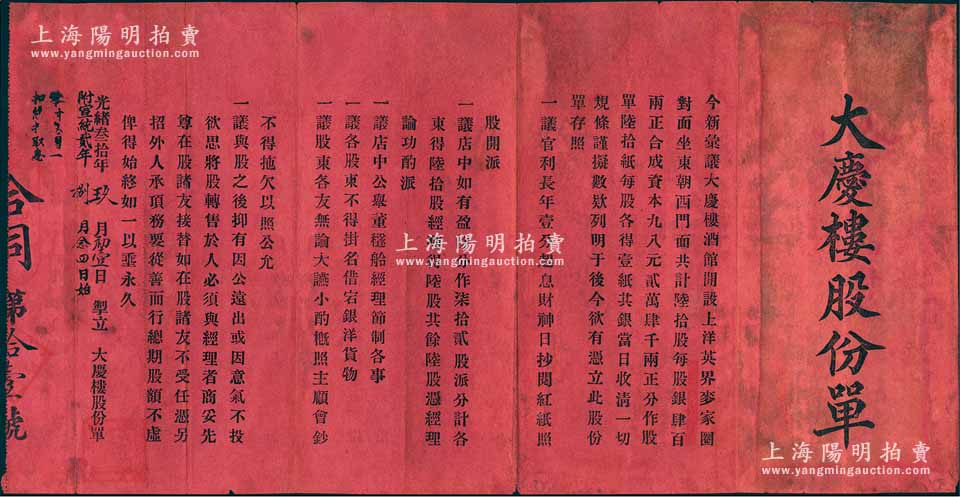 大慶樓股份單
今新彙議大慶樓酒館開設上洋英界麥家圈
對面坐東朝西門面共計陸拾股每股銀肆百
兩正合成資本九八元貳萬肆千兩正分作股
單陸拾紙每股各得壹紙其銀當日收清一切
規條謹擬數欵列明于後今欲有憑立此股份
單存照
一議官利長年壹分 息財神日抄閱紅紙照
股開派
一議店中如有盈 作柒拾貳股派分計各
東得陸拾股經 陸股其餘陸股憑經理
論功酌派
一議店中公舉董 經理節制各事
一議各股東不得掛名借宕銀洋貨物
一議股東各友無論大讌小酌槪照主顧會鈔
不得拖欠以照公允
一議與股之後抑有因公遠出或因意氣不投
欲思將股轉售於人必須與經理者商妥先
尊在股諸友接替如在股諸友不受任憑另
招外人承頂務要從善而行總期股額不虛
俾得始終如一以垂永久
光緒叁拾年 玖 月初壹日 掣立 大慶樓股份單
附宣統貳年 捌 月念四日始
合同 第拾壹號
上海陽明拍賣
www.yangmingauction.com
上海陽明拍賣
www.yangmingauction.com
上海陽明拍賣
www.yangmingauction.com